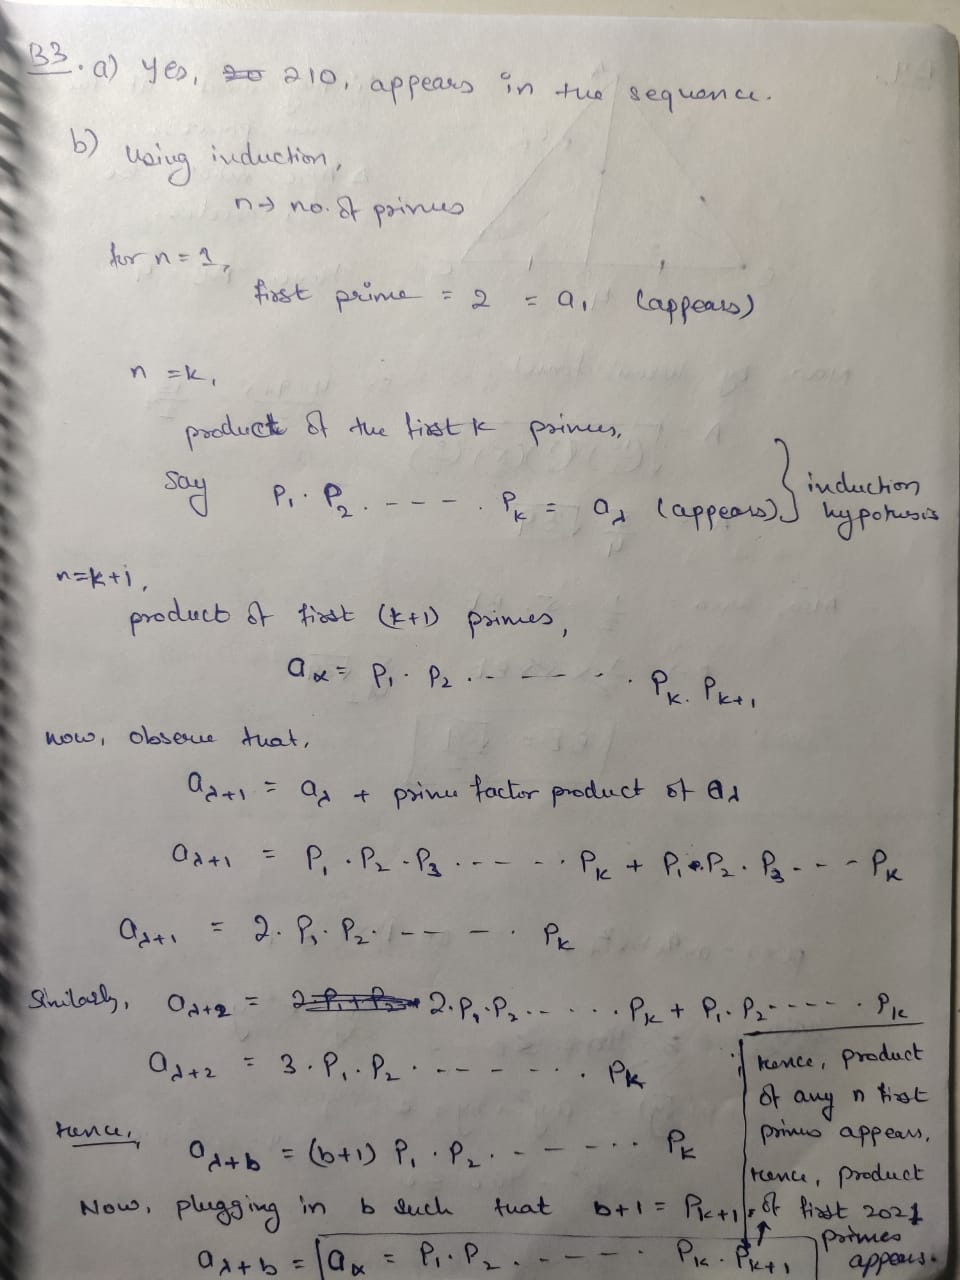 B3. a) Yes, 210, appears in the sequence.
b) Using induction,
n → no. of primes
for n = 1,
first prime = 2 = a₁ (appears)
n = k,
product of the first k primes,
say P₁ · P₂ · - - - - · Pₖ = a_λ (appears) } induction hypothesis
n = k+1,
product of first (k+1) primes,
a_α = P₁ · P₂ · - - - - - · Pₖ · Pₖ₊₁
now, observe that,
a_λ+1 = a_λ + prime factor product of a_λ
a_λ+1 = P₁ · P₂ · P₃ · - - - - · Pₖ + P₁ · P₂ · P₃ · - - - Pₖ
a_λ+1 = 2 · P₁ · P₂ · - - - - · Pₖ
Similarly, a_λ+2 = 2 · P₁ · P₂ · - - · · · · Pₖ + P₁ · P₂ · - - - - · Pₖ
a_λ+2 = 3 · P₁ · P₂ · - - - - - · · · Pₖ
Hence, a_λ+b = (b+1) P₁ · P₂ · - - - - · · · Pₖ
Now, plugging in b such that b+1 = Pₖ₊₁
a_λ+b = a_α = P₁ · P₂ · - - - - · Pₖ · Pₖ₊₁
Hence, product
of any n first
primes appears,
Hence, product
of first 2021
primes
appears.